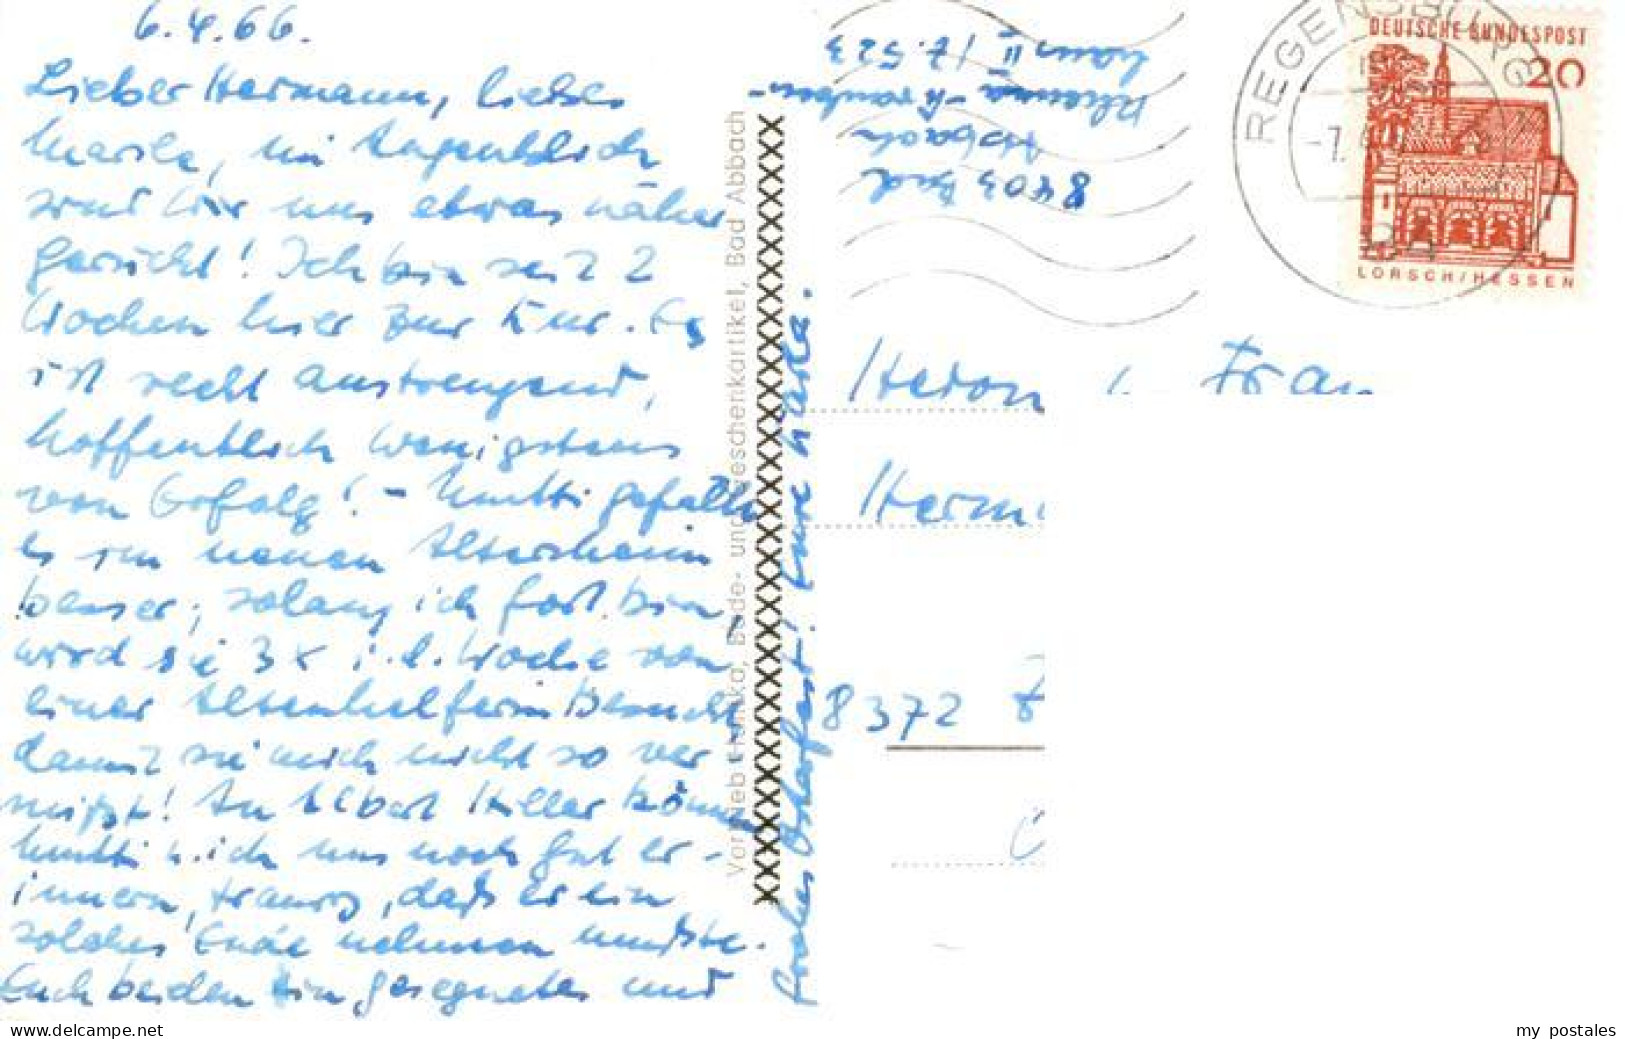 6.4.66.
Lieber Hermann, liebes
Marile, im Augenblick
sind wir uns etwas näher
gerückt! Ich bin seit 2
Wochen hier zur Kur. Es
ist recht anstrengend,
hoffentlich wenigstens
von Erfolg! - Mutti gefällt
es im neuen Altersheim
besser, solang ich fort bin,
wird sie 3x i.d. Woche von
einer Altenhelferin besucht,
damit sie mich nicht so ver
mißt! An Albert Hiller können
Mutti u. ich uns noch gut er-
innern, traurig, daß er ein
solches Ende nehmen mußte.
Euch beiden ein gesegnetes und
frohes Osterfest! Eure
Vertrieb Hanika, Bade- und Geschenkartikel, Bad Abbach
8403 Bad
Abbach
Rheuma-Kranken-
haus II 17.523
REGENSBURG
-7.
DEUTSCHE BUNDESPOST
20
LORSCH/HESSEN
Herrn u. Frau
Herm
8372 Z
www.delcampe.net
my postales